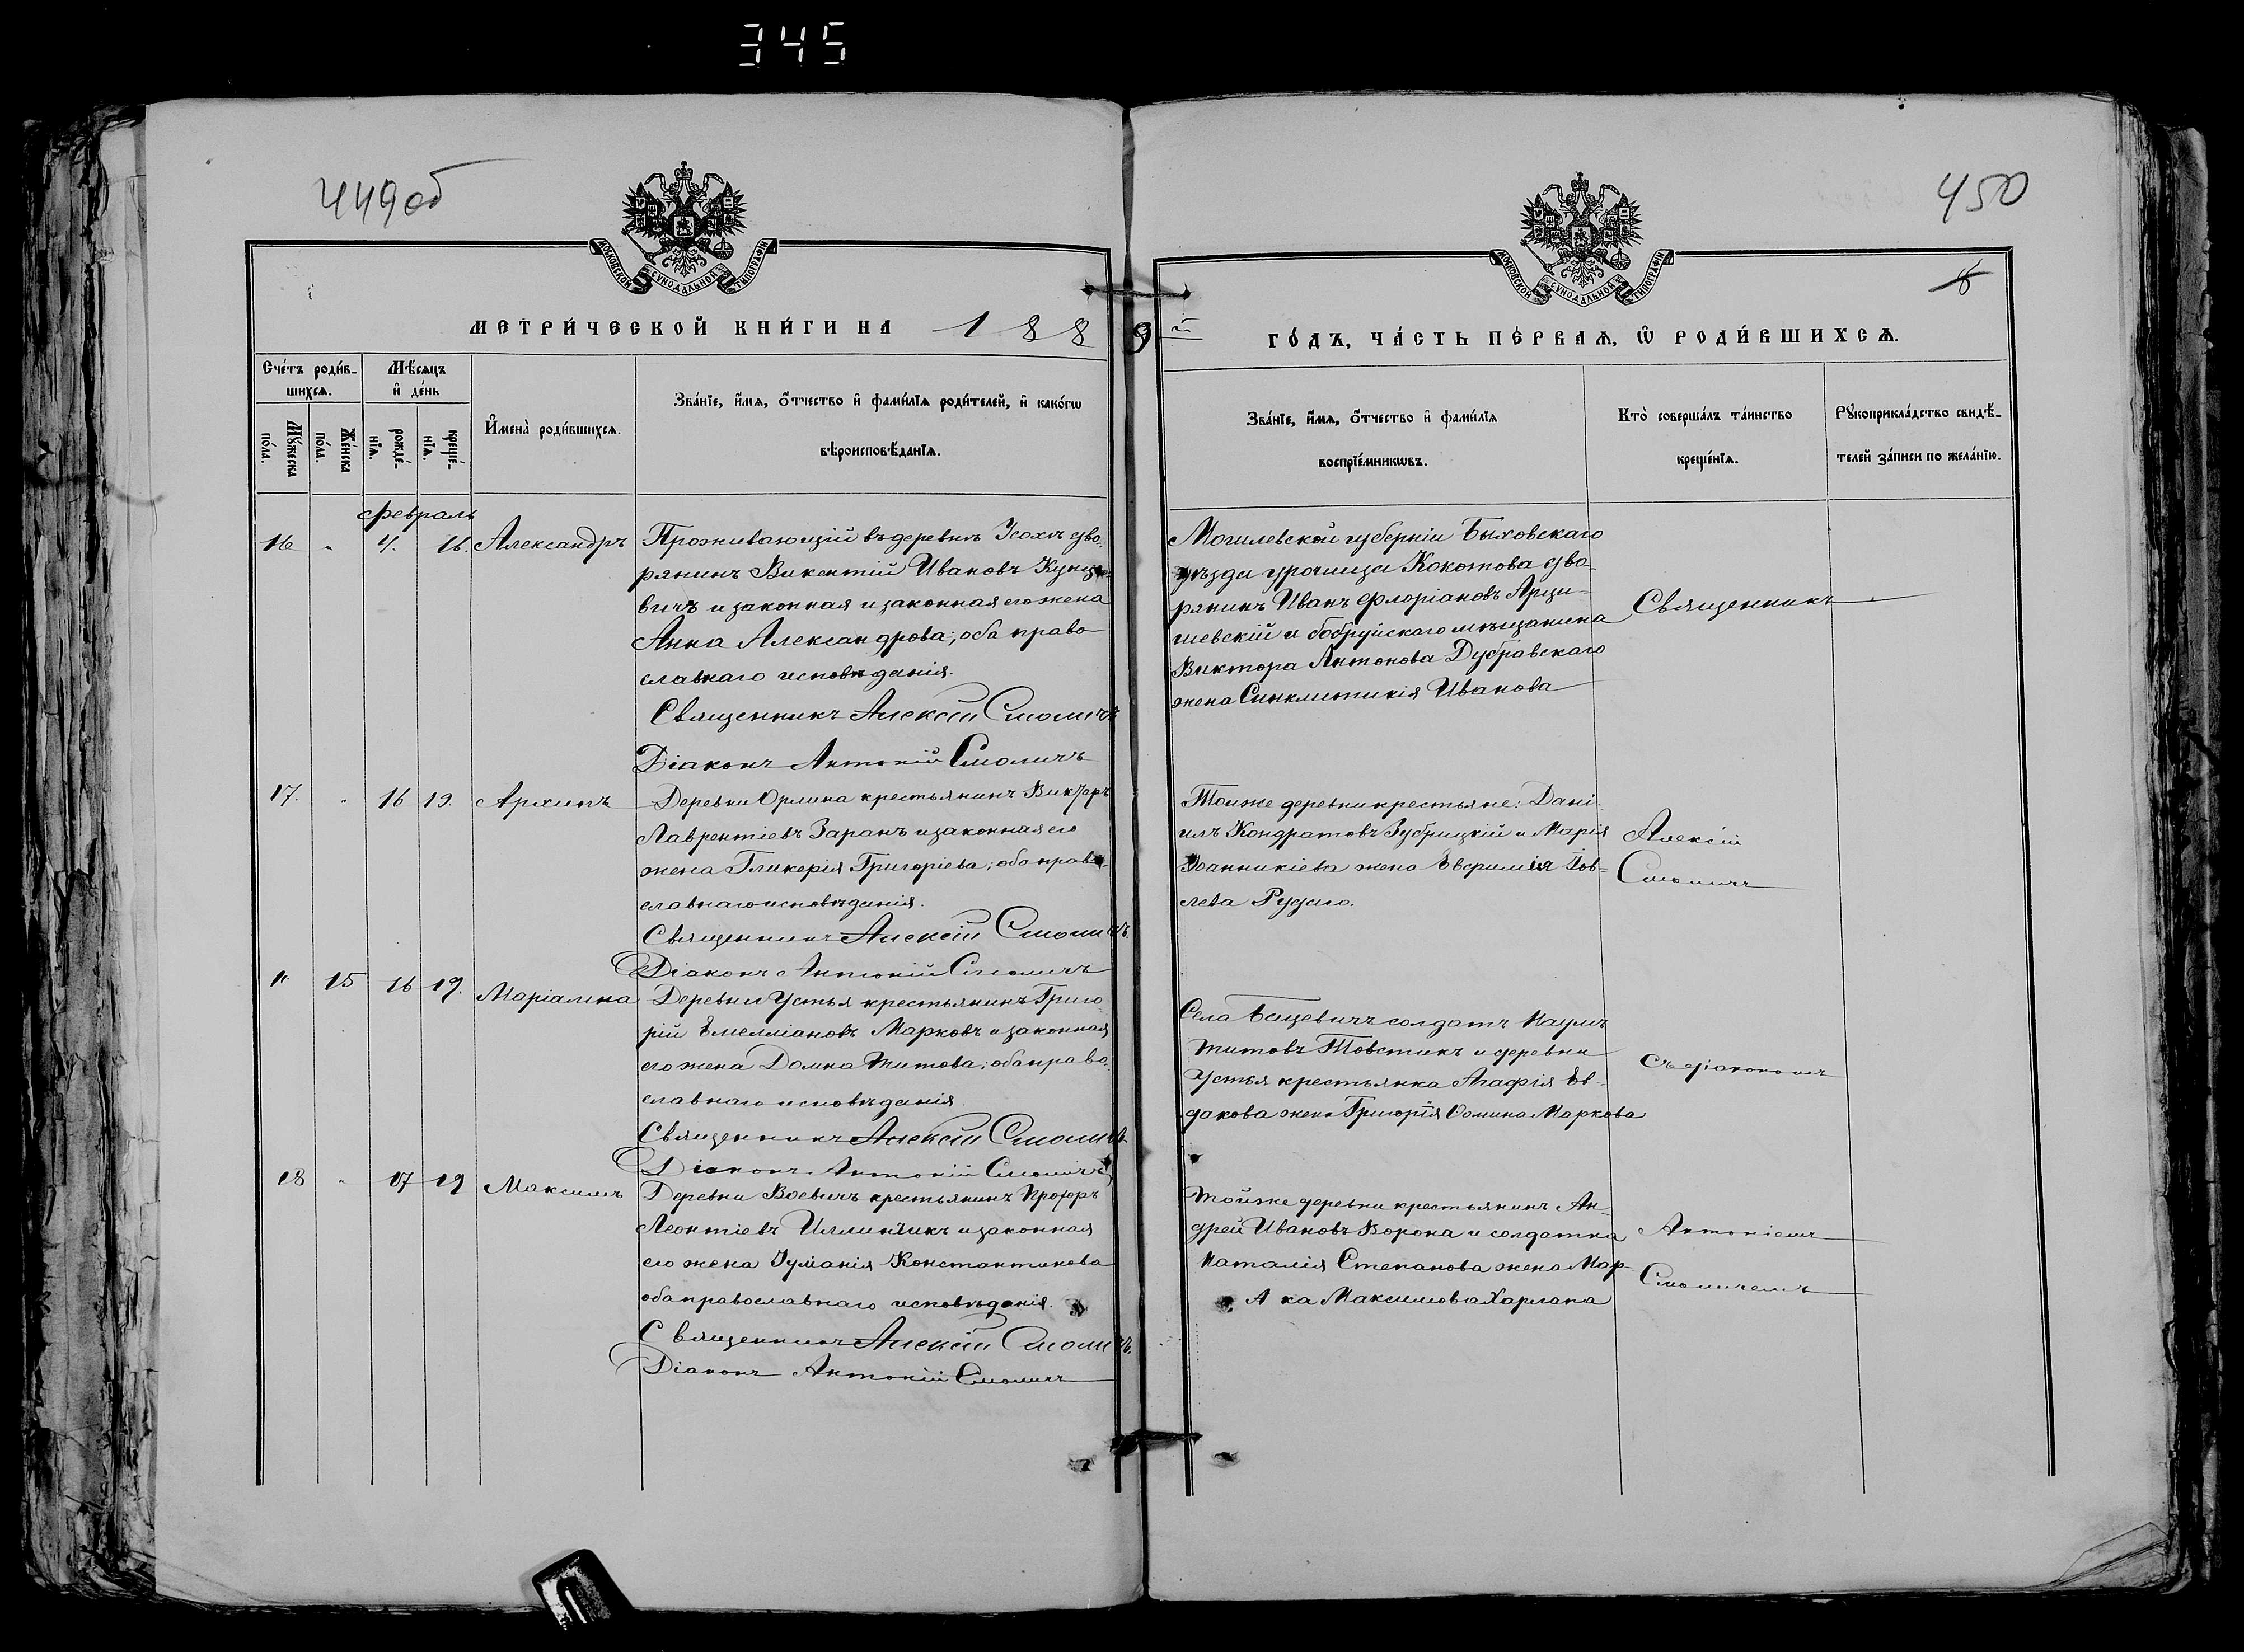 345
449об
450
МОСКОВСКОЙ СѴНОДАЛЬНОЙ ТИПОГРАФІИ
МОСКОВСКОЙ СѴНОДАЛЬНОЙ ТИПОГРАФІИ
МЕТРИ́ЧЕСКОЙ КНИ́ГИ НА 1889й ГО́ДЪ, ЧА́СТЬ ПЕ́РВАЯ, Ѡ҆ РОДИ́ВШИХСѦ.
Сче́тъ роди́в-
шихсѧ.
Мѣ́сѧцъ
и҆ де́нь
Мꙋ́жеска
по́ла.
Же́нска
по́ла.
рожде́-
нїѧ.
креще́-
нїѧ.
И҆мена̀ роди́вшихсѧ.
Зва́нїе, и҆́мѧ, ѻ҆́тчество и҆ фами́лїѧ роди́телей, и҆ како́гѡ
вѣроисповѣ́данїѧ.
Зва́нїе, и҆́мѧ, ѻ҆́тчество и҆ фами́лїѧ
воспрїе́мникѡвъ.
Кто̀ соверша́лъ та́инство
креще́нїѧ.
Рꙋкоприкла́дство свидѣ́-
телей за́писи по жела́нїю.
Февраль
16 „ 4. 16. Александръ
Проживающій въ деревнѣ Усохѣ дво-
рянинъ Викентій Ивановъ Кунце-
вичъ и законная и законная его жена
Анна Александрова; оба право
славнаго исповѣданія.
Священникъ Алексій Смоличъ
Діаконъ Антоній Смоличъ
Могилевской губерніи Быховскаго
уѣзда урочища Кокотова дво-
рянинъ Иванъ Флоріановъ Арци-
шевскій и бобруйскаго мѣщанина
Виктора Антонова Дубравскаго
жена Синклитикія Иванова
Священникъ
17. „ 16 19. Архипъ
Деревни Орлина крестьянинъ Викторъ
Лаврентіевъ Заранъ и законная его
жена Гликерія Григоріева; оба право-
славнаго исповѣданія.
Священникъ Алексій Смоличъ.
Діаконъ Антоній Смоличъ
Тойже деревни крестьяне: Дані-
илъ Кондратовъ Зубрицкій и Марія
Іоанникіева жена Евфимія Іов-
лева Рудаго.
Алексій
Смоличъ
„ 15 16 19. Маріамна
Деревни Устья крестьянинъ Григо
рій Емелліановъ Марковъ и законная
его жена Домна Титова; оба право-
славнаго исповѣданія
Священникъ Алексій Смоличъ.
Діаконъ Антоній Смоличъ
Села Бацевичъ солдатъ Наумъ
Титовъ Товстикъ и деревни
Устья крестьянка Агафія Ев-
дакова жена Григорія Фомина Маркова
съ діакономъ
18 „ 17 19 Максимъ
Деревни Воевичъ крестьянинъ Прохоръ
Леонтіевъ Иллинчикъ и законная
его жена Іуліанія Константинова
оба православнаго исповѣданія.
Священникъ Алексій Смоличъ.
Діаконъ Антоній Смоличъ
Тойже деревни крестьянинъ Ан-
дрей Ивановъ Ворона и солдатка
Наталія Степанова жена Мар-
ка Максимова Харлана
Антоніемъ
Смоличемъ